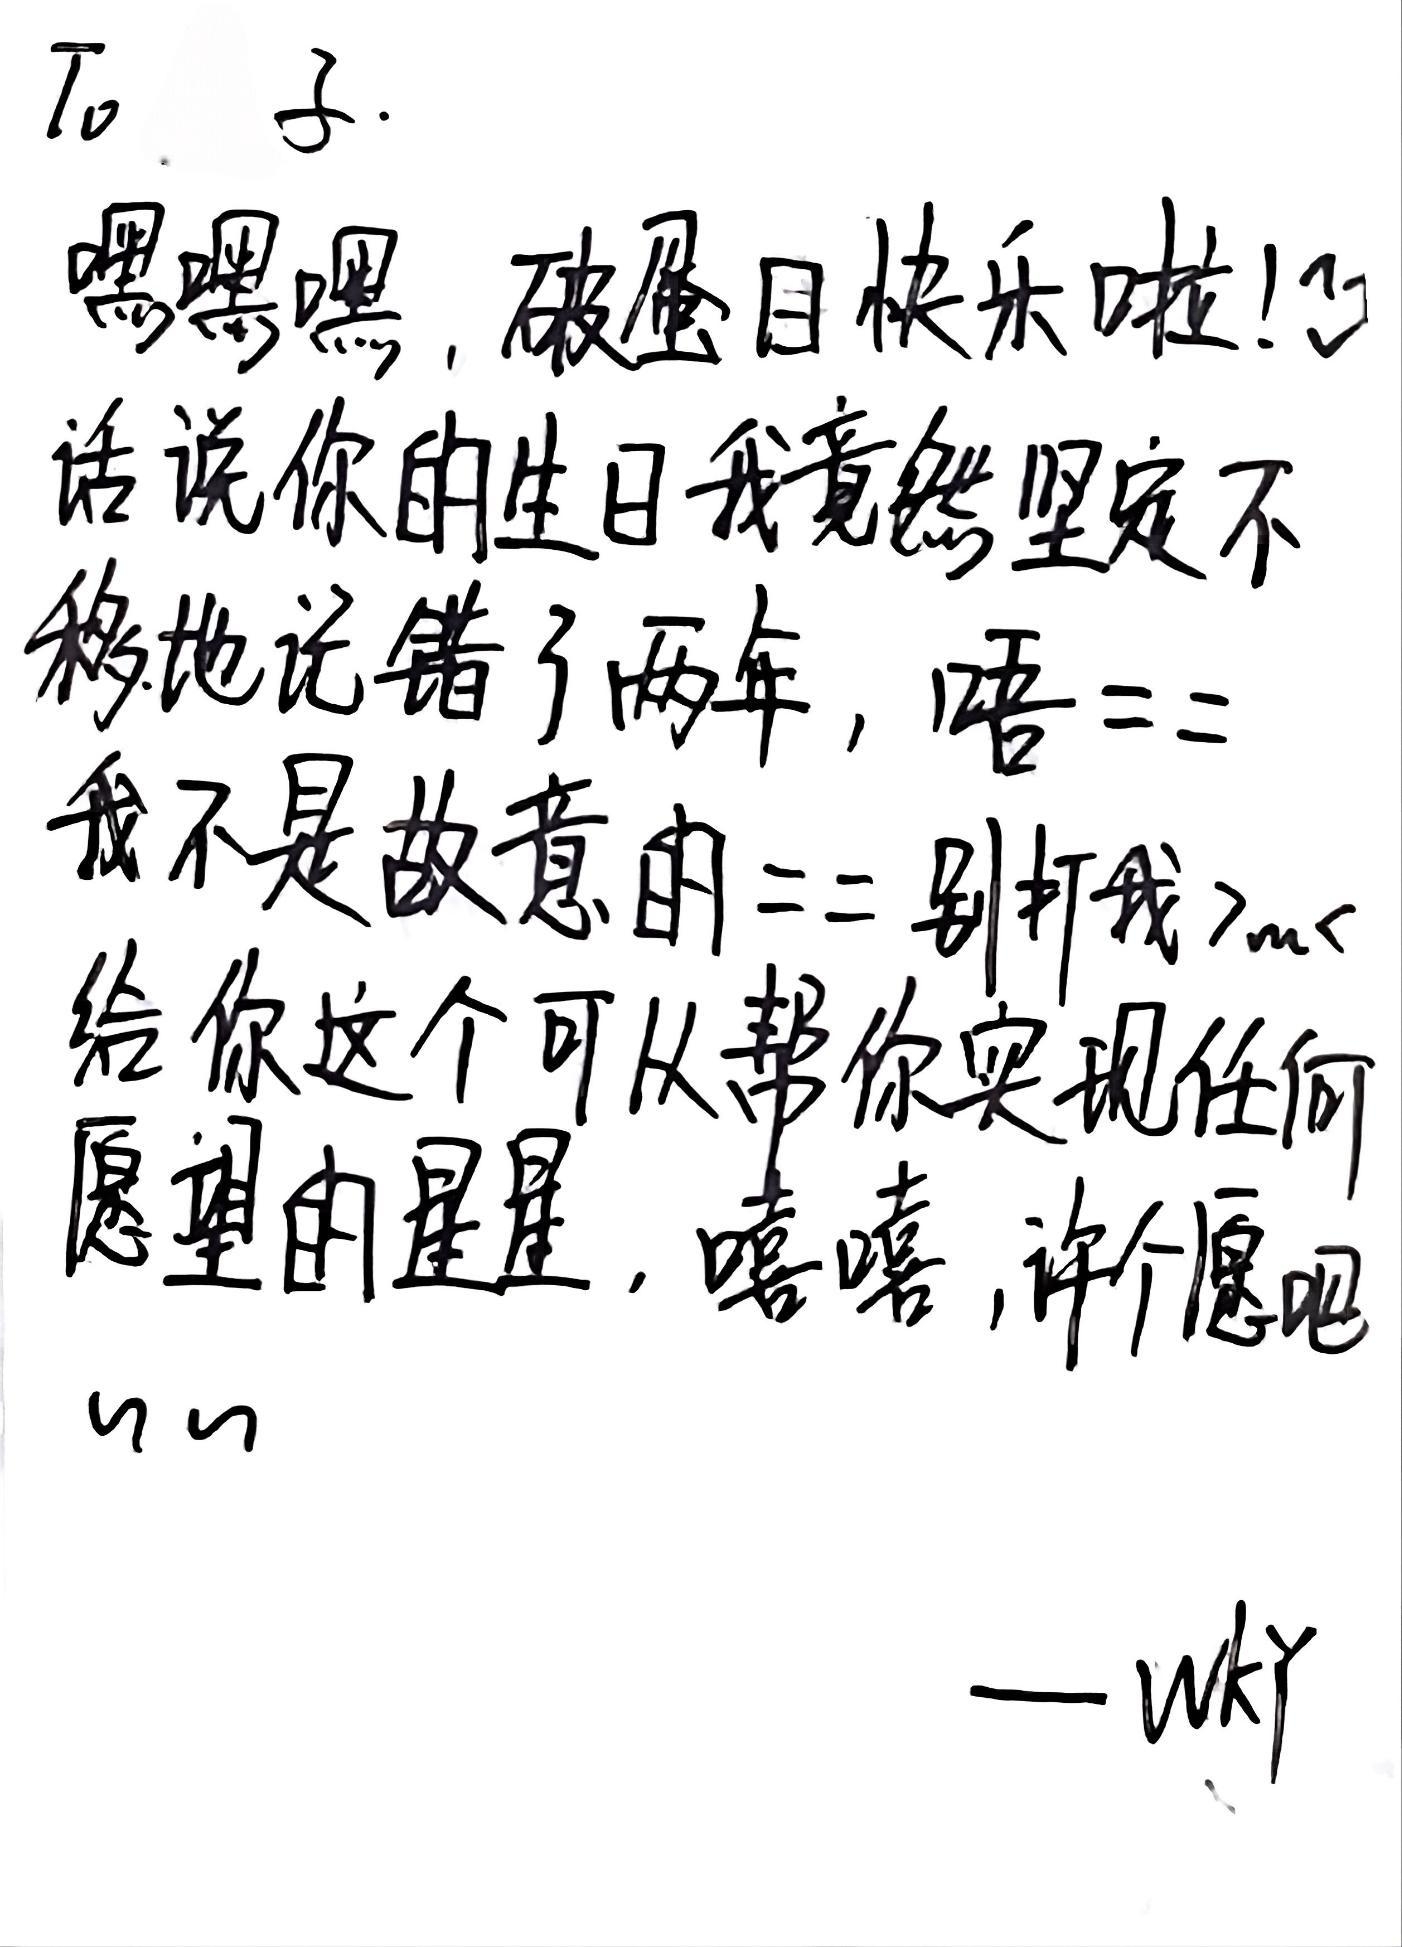 To 子.
嘿嘿嘿，破蛋日快乐啦！~
话说你的生日我竟然坚定不
移地记错了两年，唔==
我不是故意的==别打我>m<
给你这个可从帮你实现任何
愿望的星星，嘻嘻，许个愿吧
~~
—WKY